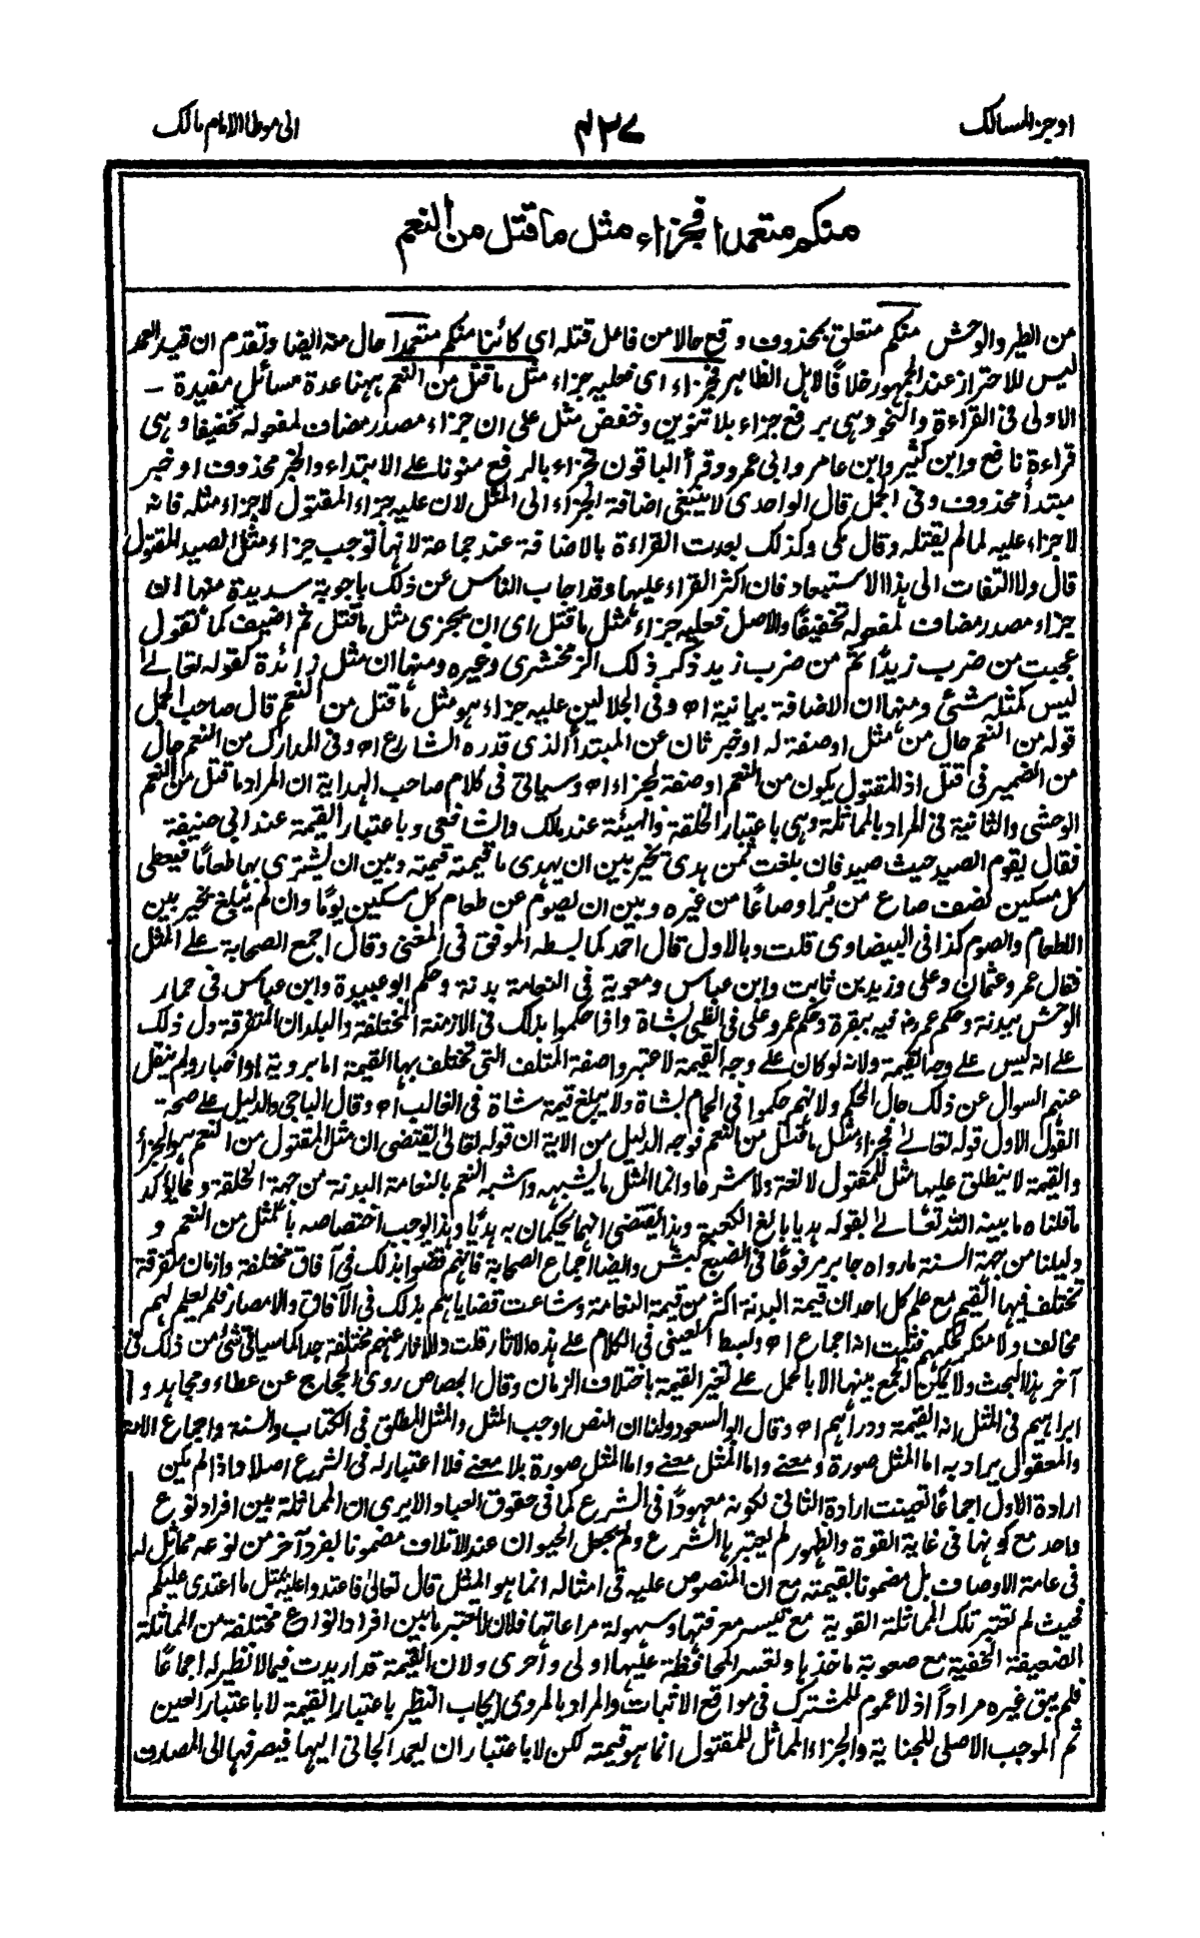 اوجز المسالك
٤٢٧
الى موطا الامام مالك
منكم متعمدا فجزاء مثل ما قتل من النعم
من الطير والوحش منكم متعلق بمحذوف وقع حالا من فاعل قتله اى كائنا منكم متعمدا حال منه ايضا وتقدم ان قيد العمد
ليس للاحتراز عند الجمهور خلافًا لاهل الظاهر فجزاء اى فعليه جزاء مثل ما قتل من النعم ههنا عدة مسائل مفيدة -
الاولى فى القراءة والنحو وهى برفع جزاء بلا تنوين وخفض مثل على ان جزاء مصدر مضاف لمفعوله تخفيفا وهى
قراءة نافع وابن كثير وابن عامر وابى عمرو وقرأ الباقون فجزاء بالرفع منونا على الابتداء والخبر محذوف او خبر
مبتدأ محذوف وفى الجمل قال الواحدى لا ينبغى اضافة الجزاء الى المثل لان عليه جزاء المقتول لا جزاء مثله فانه
لا جزاء عليه لما لم يقتله وقال مكى وكذلك بعدت القراءة بالاضافة عند جماعة لانها توجب جزاء مثل الصيد المقتول
قال ولا التفات الى هذا الاستبعاد فان اكثر القراء عليها وقد اجاب الناس عن ذلك باجوبة سديدة منها ان
جزاء مصدر مضاف لمفعوله تخفيفًا والاصل فعليه جزاء مثل ما قتل اى ان يجزى مثل ما قتل ثم اضيف كما تقول
عجبت من ضرب زيدًا ثم من ضرب زيد ذكر ذلك الزمخشرى وغيره ومنها ان مثل زائدة كقوله تعالى
ليس كمثله شئ ومنها ان الاضافة بيانية اھ وفى الجلالين عليه جزاء هو مثل ما قتل من النعم قال صاحب الجمل
قوله من النعم حال من مثل او صفة له او خبر ثان عن المبتدأ الذى قدره الشارع اھ وفى المدارك من النعم حال
من الضمير فى قتل اذ المقتول يكون من النعم او صفة لجزاء اھ وسياتى فى كلام صاحب الهداية ان المراد ما قتل من النعم
الوحشى والثانية فى المراد بالمماثلة وهى باعتبار الخلقة والهيئة عند مالك والشافعى وباعتبار القيمة عند ابى حنيفة
فقال يقوم الصيد حيث صيد فان بلغت ثمن هدى تخير بين ان يهدى ما قيمته قيمته وبين ان يشترى بها طعامًا فيعطى
كل مسكين نصف صاع من بُر او صاعًا من غيره وبين ان يصوم عن طعام كل مسكين يومًا وان لم يبلغ تخير بين
الطعام والصوم كذا فى البيضاوى قلت وبالاول قال احمد كما بسطه الموفق فى المغنى وقال اجمع الصحابة على المثل
فقال عمر وعثمان وعلى وزيد بن ثابت وابن عباس ومعوية فى النعامة بدنة وحكم ابو عبيدة وابن عباس فى حمار
الوحش ببدنة وحكم عمر رض فيه ببقرة وحكم عمر وعلى فى الظبى بشاة واذا حكموا بذلك فى الازمنة المختلفة والبلدان المتفرقة دل ذلك
على انه ليس على وجه القيمة ولانه لو كان على وجه القيمة لاعتبروا صفة المتلف التى تختلف بها القيمة اما برؤية او اخبار ولم ينقل
عنهم السوال عن ذلك حال الحكم ولانهم حكموا فى الحمام بشاة ولا يبلغ قيمة شاة فى الغالب اھ وقال الباجى والدليل على صحة
القول الاول قوله تعالى فجزاء مثل ما قتل من النعم فوجه الدليل من الاية ان قوله تعالى يقتضى ان مثل المقتول من النعم هو الجزاء
والقيمة لا ينطلق عليها مثل للمقتول لا لغة ولا شرعا وانما المثل ما يشبهه واشبه النعم بالنعامة البدنة من جهة الخلقة ومما يؤكد
ما قلناه ما بينه الله تعالى بقوله هديا بالغ الكعبة وهذا يقتضى انهما يحكمان به هديًا وهذا يوجب اختصاصه بالمثل من النعم و
دليلنا من جهة السنة ما رواه جابر مرفوعًا فى الضبع كبش وايضا اجماع الصحابة فانهم قضوا بذلك فى آفاق مختلفة وازمان متفرقة
تختلف فيها القيم مع علم كل احد ان قيمة البدنة اكثر من قيمة النعامة وشاعت قضاياهم بذلك فى الآفاق والامصار فلم يعلم لهم
مخالف ولا منكر لحكمهم فثبت انه اجماع اھ وبسط العينى فى الكلام على هذه الاثار قلت والاثار عنهم مختلفة جدا كما سياتى شئ من ذلك فى
آخر هذا البحث ولا يمكن الجمع بينها الا بالحمل على تغير القيمة باختلاف الزمان وقال الجصاص روى الحجاج عن عطاء ومجاهد و
ابراهيم فى المثل انه القيمة ودراهم اھ وقال ابو السعود ولنا ان النص اوجب المثل والمثل المطلق فى الكتاب والسنة واجماع الامة
والمعقول يراد به اما المثل صورة ومعنى واما المثل معنى واما المثل صورة بلا معنى فلا اعتبار له فى الشرع اصلا واذا لم يكن
ارادة الاول اجماعًا تعينت ارادة الثانى لكونه معهودًا فى الشرع كما فى حقوق العباد الا يرى ان المماثلة بين افراد نوع
واحد مع كونها فى غاية القوة والظهور لم يعتبرها الشرع ولم يجعل الحيوان عند الاتلاف مضمونا بفرد آخر من نوعه مماثل له
فى عامة الاوصاف بل مضمونا بقيمته مع ان المنصوص عليه فى امثاله انما هو المثل قال تعالى فاعتدوا عليه بمثل ما اعتدى عليكم
فحيث لم تعتبر تلك المماثلة القوية مع تيسر معرفتها وسهولة مراعاتها فلان لا تعتبر ما بين افراد انواع مختلفة من المماثلة
الضعيفة الخفية مع صعوبة ماخذها وتعسر المحافظة عليها اولى وأحرى ولان القيمة قد اريدت فيما لا نظير له اجماعًا
فلم يبق غيره مرادًا اذ لا عموم للمشترك فى مواقع الاثبات والمراد بالمروى ايجاب النظير باعتبار القيمة لا باعتبار العين
ثم الموجب الاصلى للجناية والجزاء المماثل للمقتول انما هو قيمته لكن لا باعتبار ان يعمد الجانى اليها فيصرفها الى المصارف